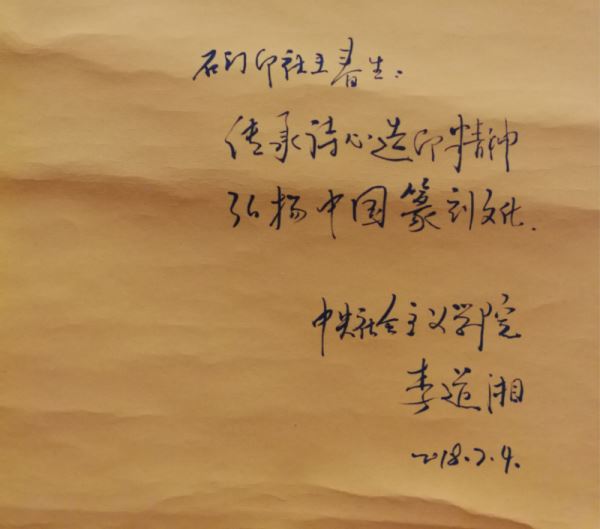 石门印社王春生：
传承诗心造印精神
弘扬中国篆刻文化.
中央社会主义学院
李道湘
2018.7.4.